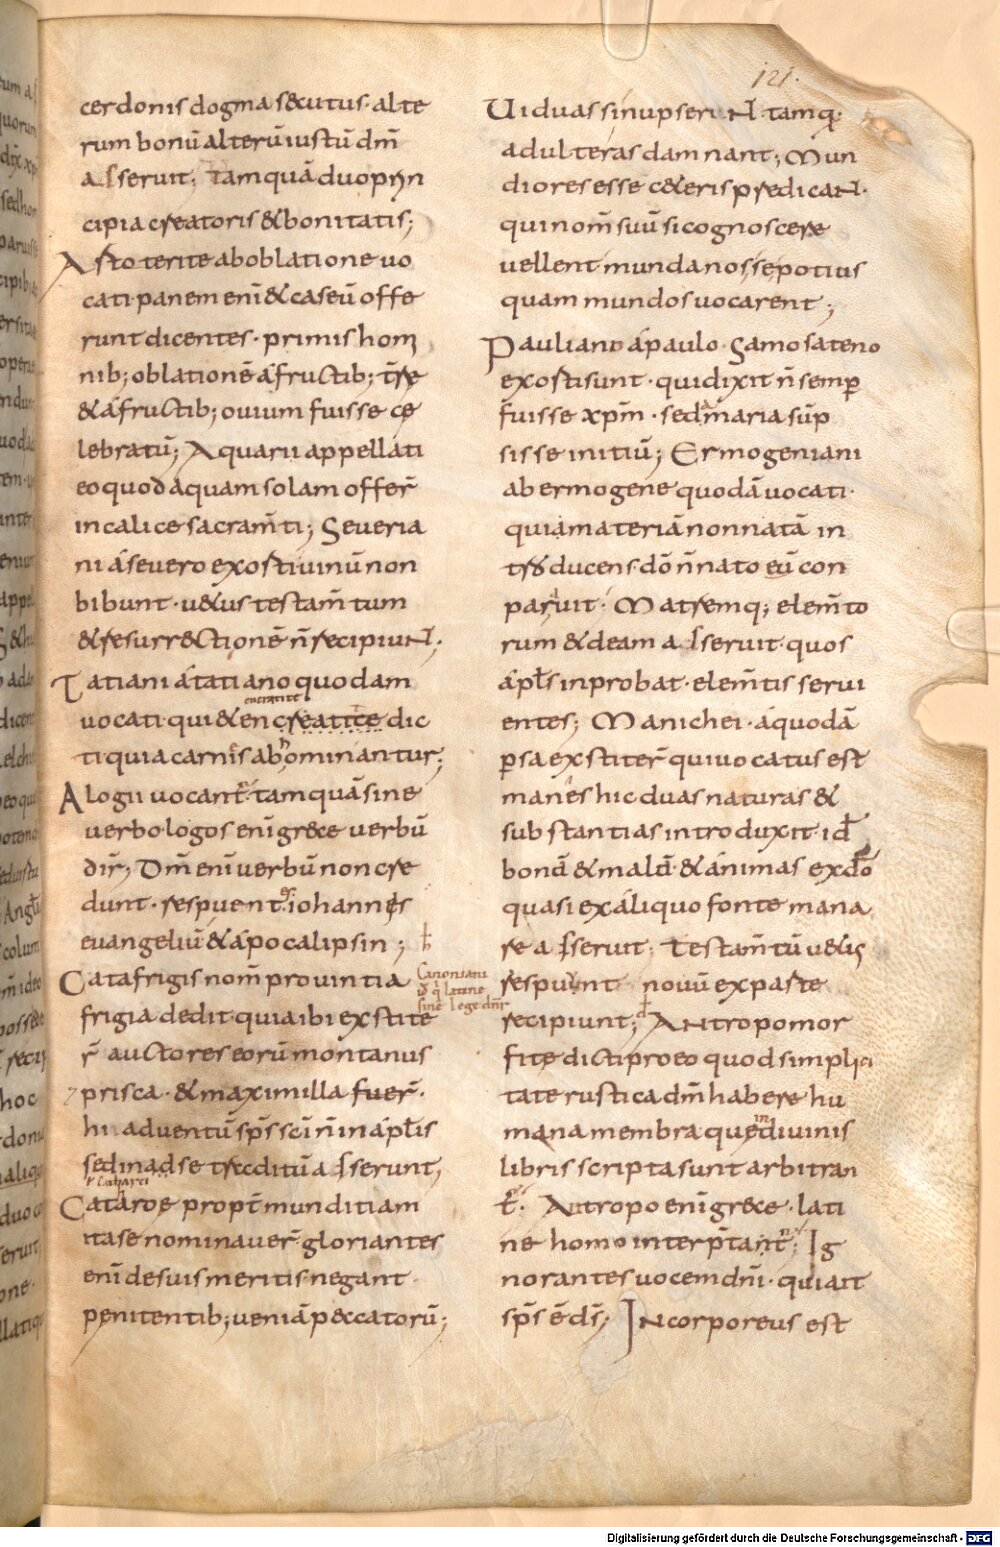 121.
cerdonis dogma secutus · alte
rum bonū alterū iustū dm̄
asseruit; tamquā duo prin
cipia creatoris & bonitatis;
Astoterite ab oblatione uo
cati · panem enī & caseū offe
runt dicentes · primis hom
nib; oblationē á fructib; tr̄e
& á fructib; ouium fuisse ce
lebratū; Aquarii appellati
eo quod aquam solam offer̄
in calice sacram̄ti; Seueria
ni á seuero exosti uinū non
bibunt · uetus testam̄tum
& resurrectionē n̄ recipiunt;
Tatiani á tatiano quodam
encratite
uocati qui & encreatice dic
ti quia carnis abhominantur;
Alogii uocant̄ tamquā sine
uerbo · logos enī grece uerbū
dir̄; Dm̄ enī uerbū non cre
dunt · respuentes iohannis
euangeliū & ápocalipsin;
Catafrigis nom̄ prouintia
Canoniani
id q̄ latine
sine lege dnr̄
frigia dedit quia ibi exstite
r̄ auctores eorū montanus
prisca · & maximilla fuer̄ ·
hii aduentū sp̄s sc̄i n̄ in ápl̄is
sed in ad se traditū asserunt;
Cathari
Cataroe propt̄ munditiam
ita se nominauer̄ · gloriantes
enī de suis meritis · negant ·
penitentib; ueniā peccatorū;
Uiduas si nupserint tamq;
adulteras damnant; Mun
diores esse ceteris predicant ·
qui nom̄ suū si cognoscere
uellent mundanos se potius
quam mundos uocarent;
Pauliano á paulo · Samosateno
exosti sunt · qui dixit n̄ semp̄
fuisse xp̄m · sed maria sūp
sisse initiū; Ermogeniani
ab ermogene quodā uocati ·
quia materiā non natā in
troducens dō n̄ nato eū con
paruit · Matremq; elem̄to
rum & deam asseruit · quos
ápl̄s inprobat · elem̄tis serui
entes; Manichei · á quodā
psa exstiter̄ qui uocatus est
manes hic duas naturas &
substantias introduxit id̄
bonā & malā & ánimas ex dō
quasi ex áliquo fonte mana
re asserut; Testam̄tū uetus
respuunt nouū ex parte
recipiunt; Antropomor
fite dicti pro eo quod simplici
tate rustica dm̄ habere hu
mana membra que in diuinis
libris scripta sunt arbitran
t̄ · Antropo enī grece · lati
ne homo interp̄tant̄; Ig
norantes uocem dn̄i · qui ait
sp̄s ē ds̄; Incorporeus est
Digitalisierung gefördert durch die Deutsche Forschungsgemeinschaft - DFG